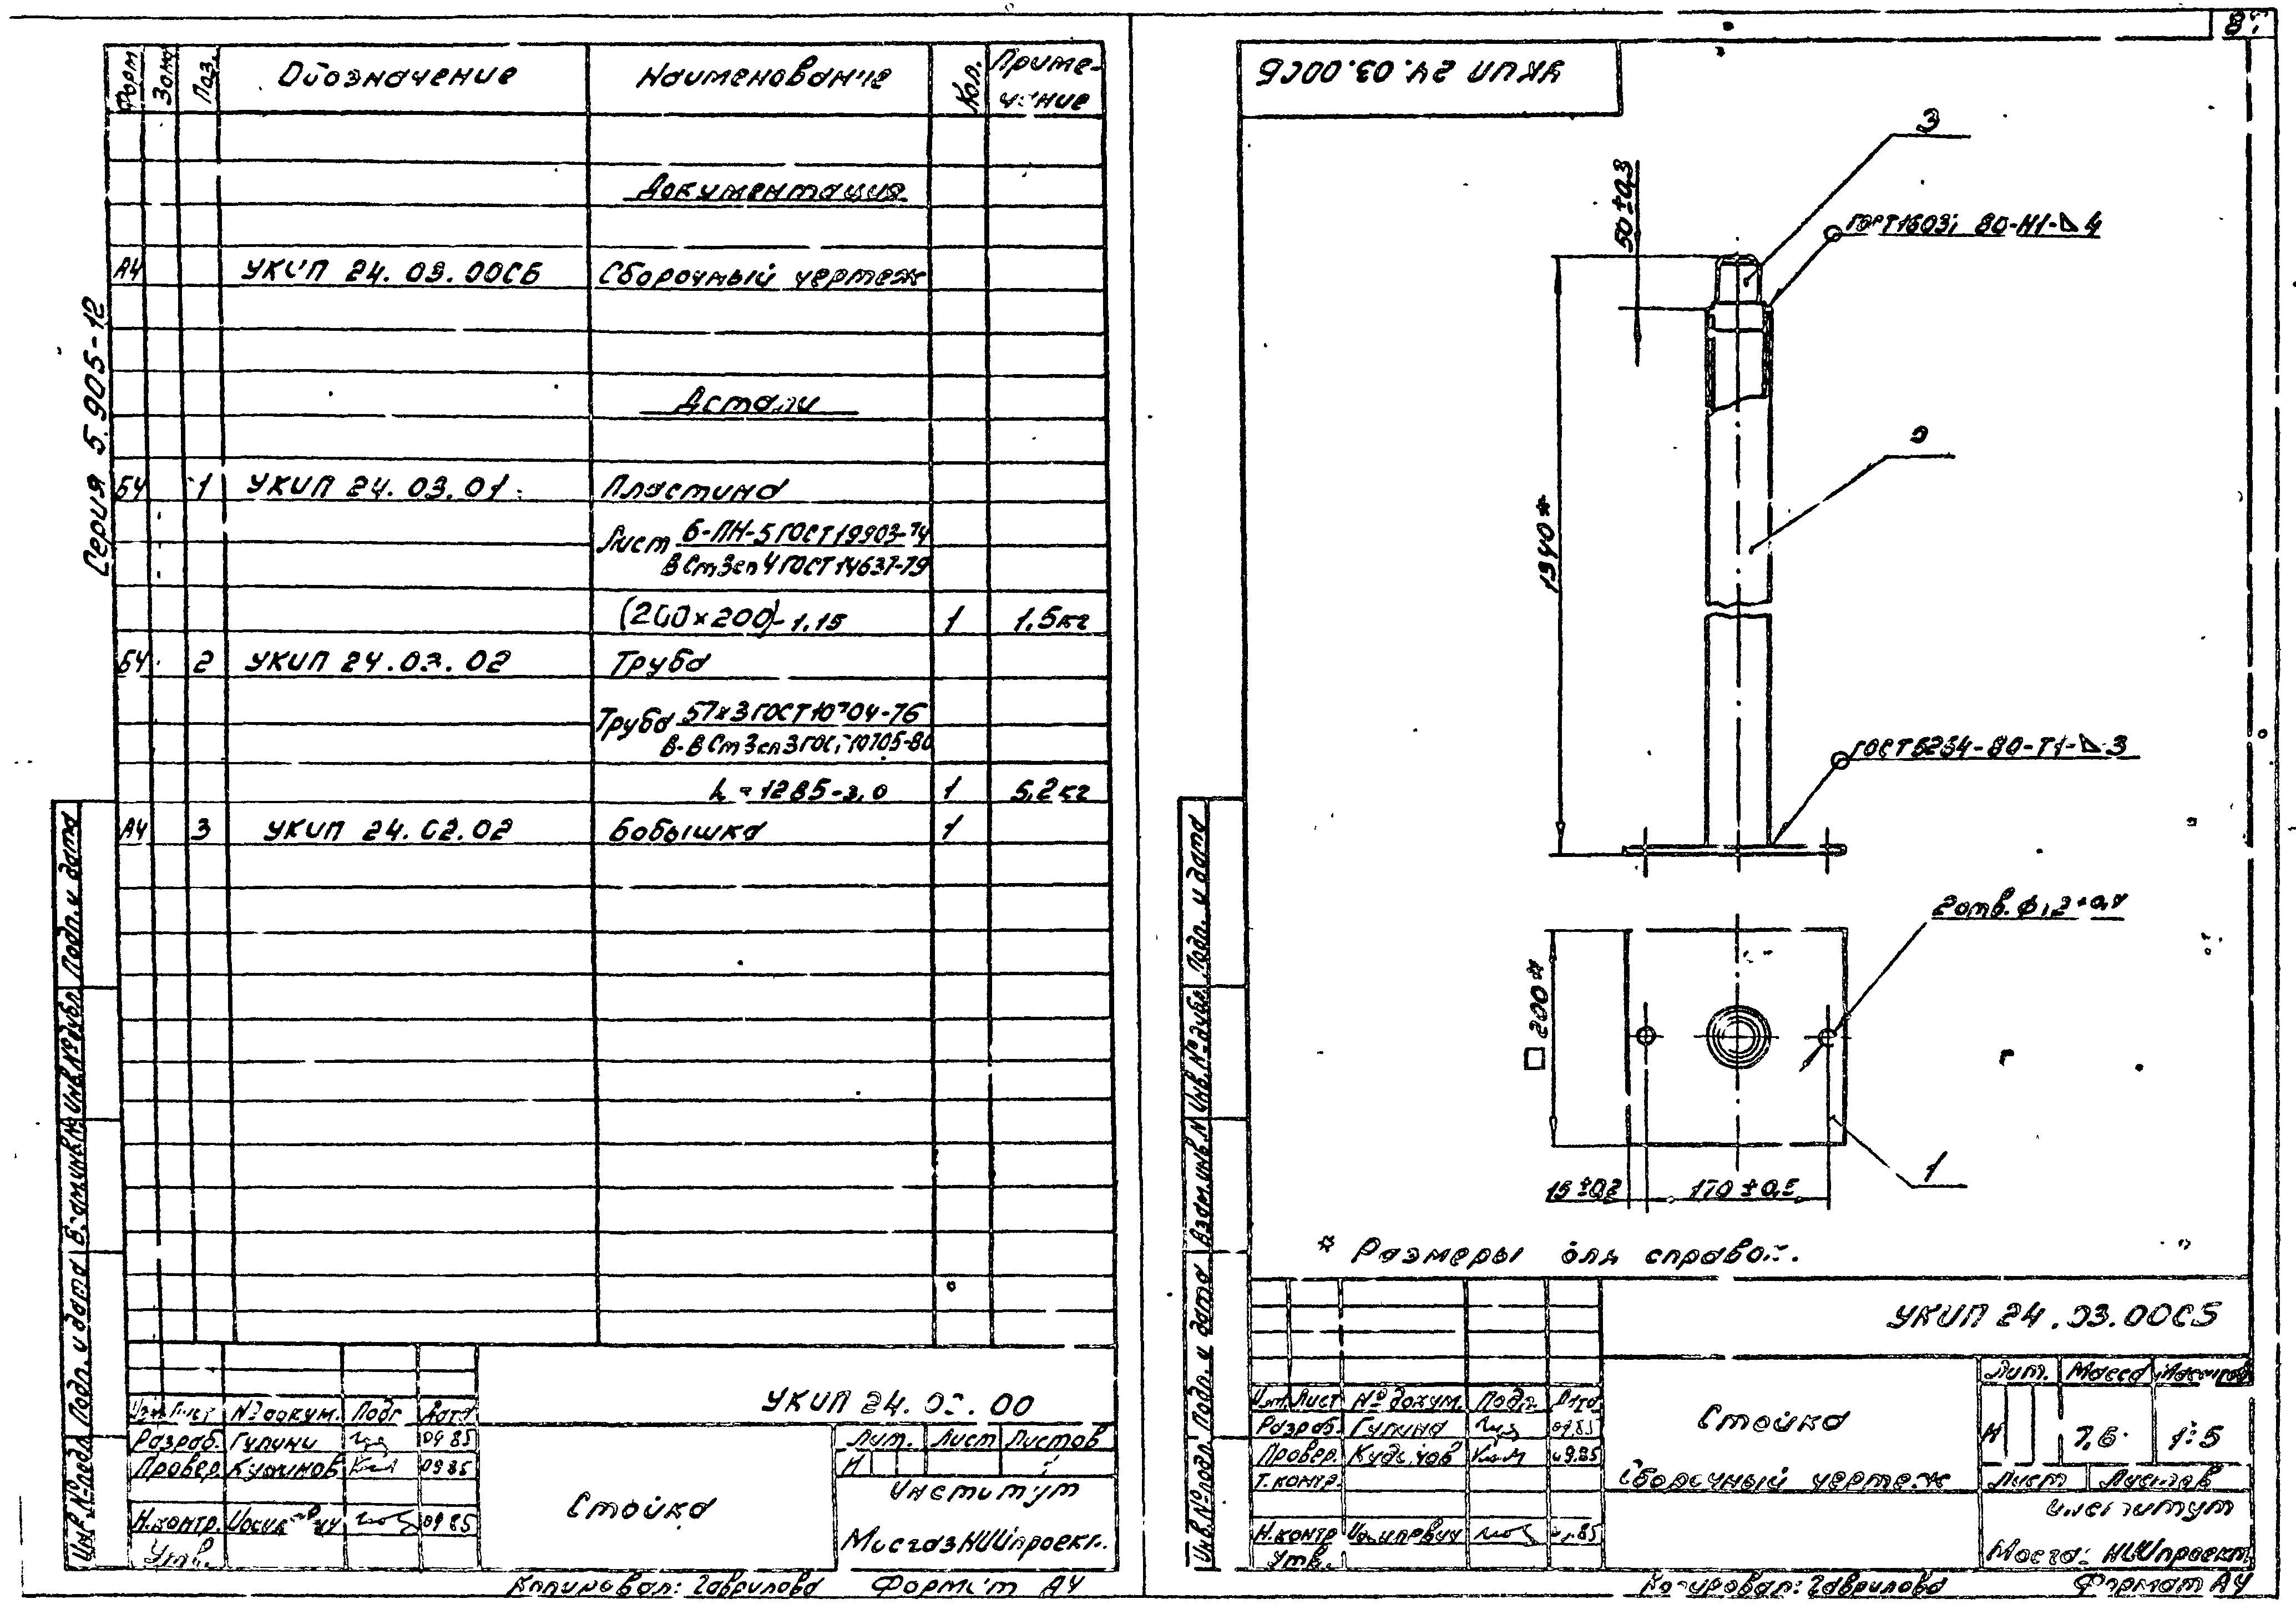 Форм Зона Поз. Обозначение Наименование Кол. Приме-
чание
Документация
А4 УКИП 24.03.00СБ Сборочный чертеж
Детали
Б4 1 УКИП 24.03.01 Пластина
Лист 6-ПН-5 ГОСТ 19903-74
ВСт3сп4 ГОСТ 14637-79
(200×200)-1.15 1 1,5кг
Б4 2 УКИП 24.03.02 Труба
Труба 57×3 ГОСТ 10704-76
В-ВСт3сп3 ГОСТ 10705-80
L=1285-3,0 1 5,2кг
А4 3 УКИП 24.02.02 Бобышка 1
Серия 5.905-12
Подп. и дата
Инв.№дубл.
Взам.инв.№
Подп. и дата
Инв.№подл.
УКИП 24.03.00
Изм. Лист №докум. Подп. Дата
Разраб. 09.85
Провер. 09.85
Н.контр. 09.85
Утв.
Стойка
Лит. Лист Листов
И
Институт
МосгазНИИпроект
Копировал: Гаврилова Формат А4
УКИП 24.03.00СБ
3
50±0,3
1340*
ГОСТ 5264-80-Т1-⊿3
□200*
1
15±0,2 170±0,5
* Размеры для справок.
Подп. и дата
Инв.№дубл.
Взам.инв.№
Подп. и дата
Инв.№подл.
УКИП 24.03.00СБ
Изм. Лист №докум. Подп. Дата
Разраб. 09.85
Провер. 09.85
Т.контр.
Н.контр. 09.85
Утв.
Стойка
Сборочный чертеж
Лит. Масса Масштаб
И 1:5
Лист Листов
Институт
МосгазНИИпроект
Копировал: Гаврилова Формат А4